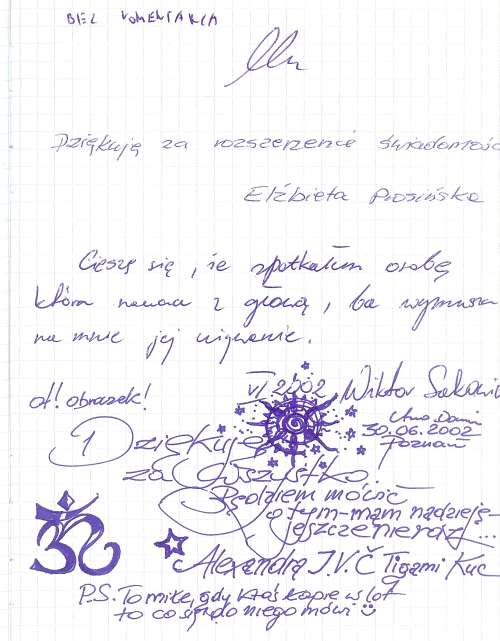 BEZ KOMENTARZA
Dziękuję za rozszerzenie świadomośc
Elżbieta Prosińska
Cieszę się, że spotkałem osobę
która z głową, ba wymusza
na mnie jej używanie.
ot! obrazek!
VI 2002 Wiktor
Anno Domini
30.06.2002
Poznań
Dziękuję
za wszystko
Będziem mówić
o tym - mam nadzieję -
jeszcze nieraz...
Alexandra J.V.Č Tigami Kuc
P.S. To miłe, gdy ktoś łapie w lot
to co się do niego mówi